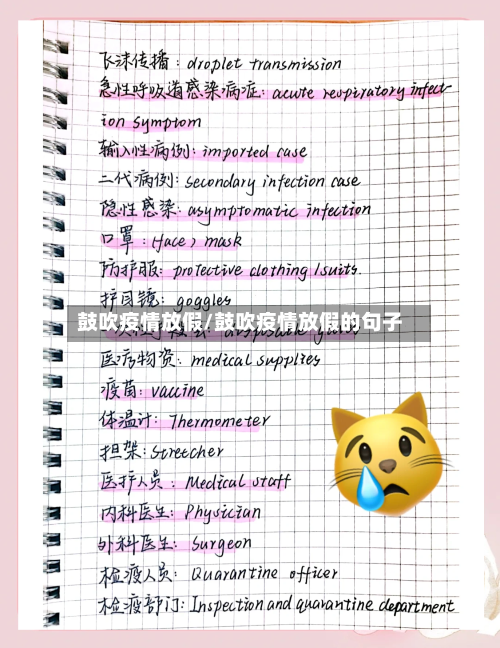 飞沫传播: droplet transmission
急性呼吸道感染病症: acute respiratory infect
ion symptom
输入性病例: imported case
二代病例: secondary infection case
隐性感染: asymptomatic infection
口罩: (face) mask
防护服: protective clothing / suits.
护目镜: goggles
鼓吹疫情放假/鼓吹疫情放假的句子
医疗物资: medical supplies
疫苗: vaccine
体温计: Thermometer
担架: Stretcher
医护人员: Medical staff
内科医生: Physician
外科医生: Surgeon
检疫人员: Quarantine officer
检疫部门: Inspection and quarantine department